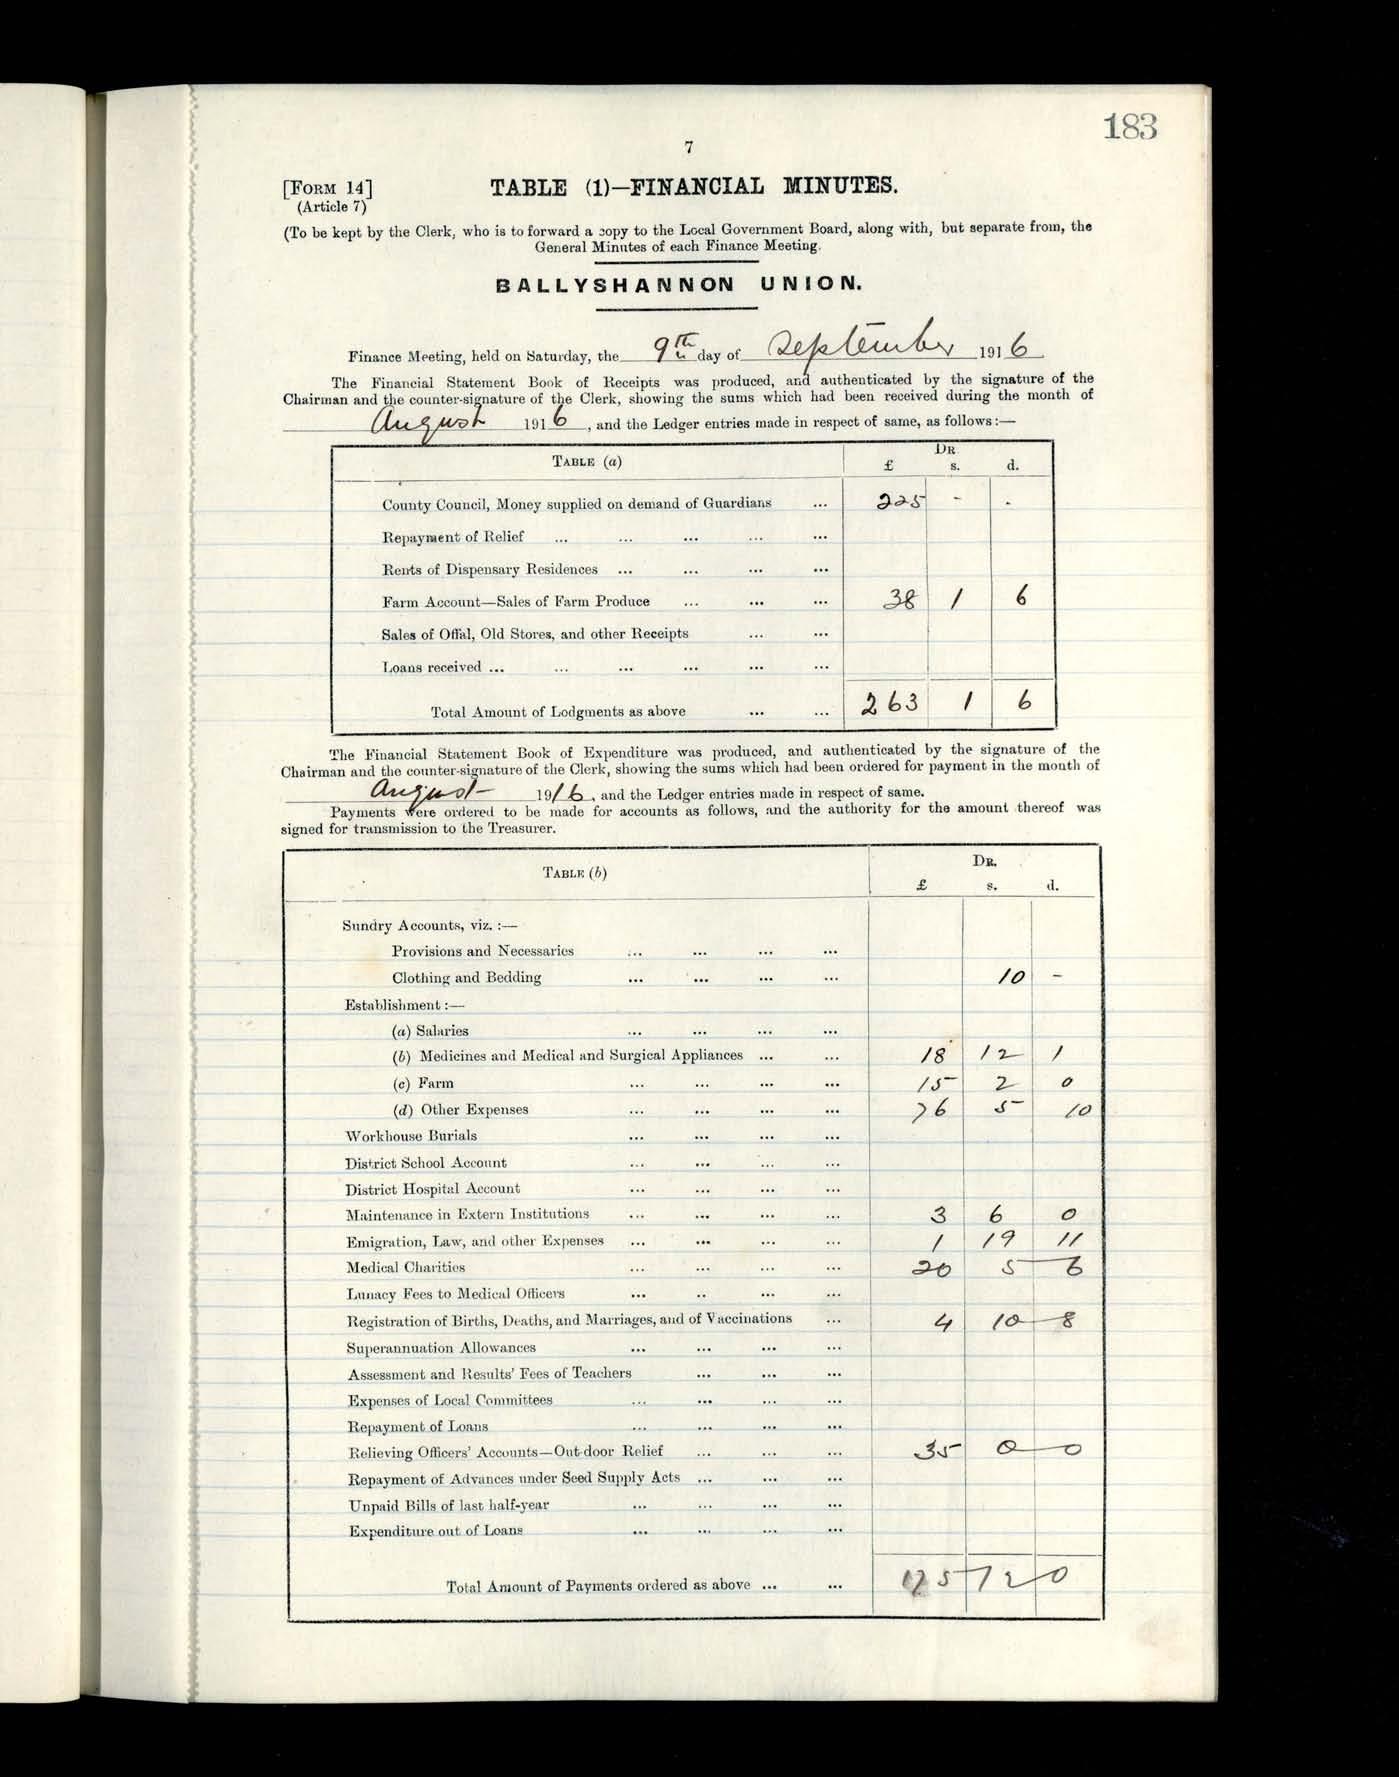 183
7
[FORM 14]
TABLE (1)—FINANCIAL MINUTES.
(Article 7)
(To be kept by the Clerk, who is to forward a copy to the Local Government Board, along with, but separate from, the
General Minutes of each Finance Meeting.
BALLYSHANNON UNION.
Finance Meeting, held on Saturday, the 9th day of September 1916
The Financial Statement Book of Receipts was produced, and authenticated by the signature of the
Chairman and the counter-signature of the Clerk, showing the sums which had been received during the month of
August 1916, and the Ledger entries made in respect of same, as follows:—
TABLE (a) DR
£ s. d.
County Council, Money supplied on demand of Guardians ... 225 - -
Repayment of Relief ... ... ... ... ...
Rents of Dispensary Residences ... ... ... ...
Farm Account—Sales of Farm Produce ... ... ... 38 1 6
Sales of Offal, Old Stores, and other Receipts ... ...
Loans received ... ... ... ... ... ...
Total Amount of Lodgments as above ... ... 263 1 6
The Financial Statement Book of Expenditure was produced, and authenticated by the signature of the
Chairman and the counter-signature of the Clerk, showing the sums which had been ordered for payment in the month of
August 1916, and the Ledger entries made in respect of same.
Payments were ordered to be made for accounts as follows, and the authority for the amount thereof was
signed for transmission to the Treasurer.
TABLE (b) DR.
£ s. d.
Sundry Accounts, viz. :—
Provisions and Necessaries ... ... ... ...
Clothing and Bedding ... ... ... ... 10 -
Establishment :—
(a) Salaries ... ... ... ...
(b) Medicines and Medical and Surgical Appliances ... ... 18 12 1
(c) Farm ... ... ... ... 15 2 0
(d) Other Expenses ... ... ... ... 76 5 10
Workhouse Burials ... ... ... ...
District School Account ... ... ... ...
District Hospital Account ... ... ... ...
Maintenance in Extern Institutions ... ... ... ... 3 6 0
Emigration, Law, and other Expenses ... ... ... ... 1 19 11
Medical Charities ... ... ... ... 20 5 6
Lunacy Fees to Medical Officers ... .. ... ...
Registration of Births, Deaths, and Marriages, and of Vaccinations ... 4 10 8
Superannuation Allowances ... ... ... ...
Assessment and Results' Fees of Teachers ... ... ...
Expenses of Local Committees ... ... ... ...
Repayment of Loans ... ... ... ...
Relieving Officers' Accounts—Out-door Relief ... ... ... 35 0 0
Repayment of Advances under Seed Supply Acts ... ... ...
Unpaid Bills of last half-year ... ... ... ...
Expenditure out of Loans ... ... ... ...
Total Amount of Payments ordered as above ... ... 175 12 0